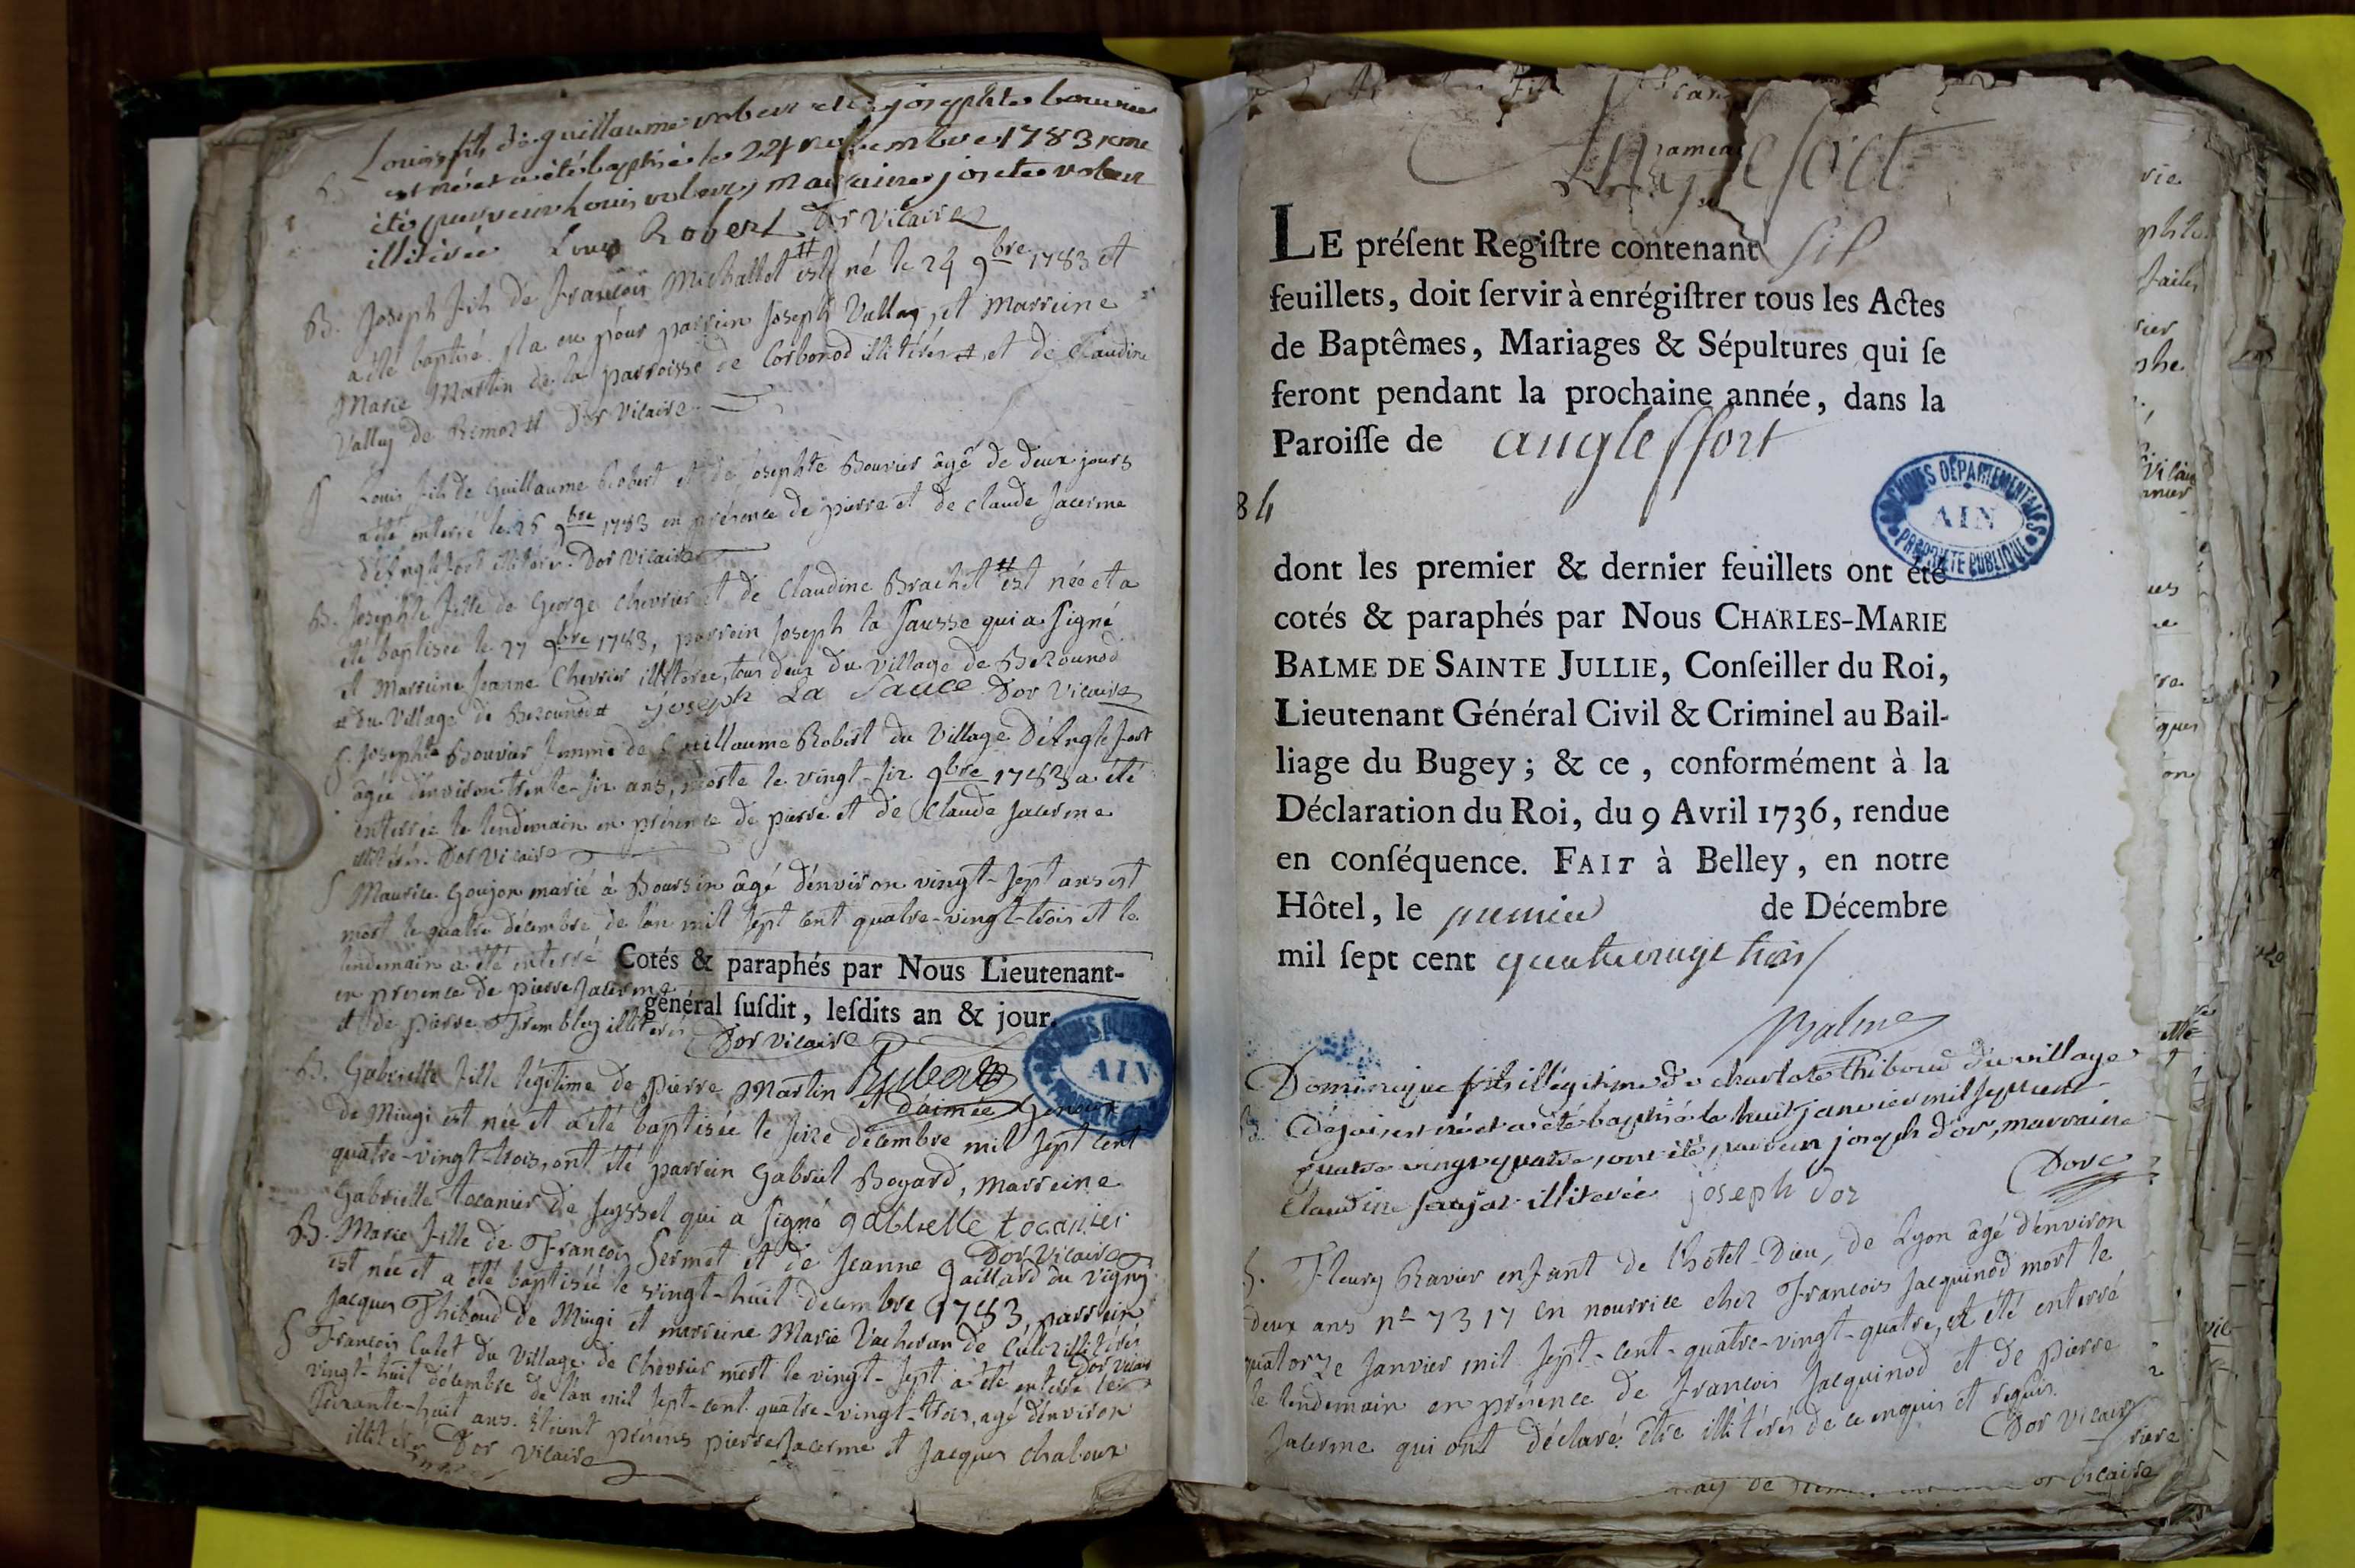 Louis fils de guillaume robert et de josephte bouvier
est né et a été baptisé le 24 novembre 1783 ont
été parrein Louis robert, marraine josete robert
illitérée Louis Robert Dor vicaire
B. Joseph fils de François Michallet # est né le 24 9bre 1783 et
a été baptisé. Il a eu pour parrein Joseph Vallay et Marreine
Marie Martin de la parroisse de Corbonod illitérés # et de Claudine
Vallay de Rémoz # Dor Vicaire
S Louis fils de Guillaume Robert et de Josephte Bouvier âgé de deux jours
a été enterré le 25 9bre 1783 en présence de pierre et de claude Jacerme
d'Anglefort illitérés. Dor Vicaire
B. Josephte fille de George chevrier et de Claudine Brachet # est née et a
été baptisée le 27 9bre 1783, parrein Joseph la Sausse qui a signé
et Marreine Jeanne Chevrier illitérée, tous deux du village de Bezounod
# du village de Bezounod # joseph La Sauce Dor Vicaire
S. Josephte Bouvier femme de Guillaume Robert du Village d'Anglefort
âgée d'environ trente-six ans, morte le vingt-six 9bre 1783 a été
enterrée le lendemain en présence de pierre et de Claude Jacerme
illitérés. Dor Vicaire
S Maurice Goujon marié à Boursin âgé d'environ vingt-sept ans est
mort le quatre décembre de l'an mil sept cent quatre-vingt-trois et le
lendemain a été enterré
Cotés & paraphés par Nous Lieutenant-
en présence de pierre Jacerme
général suſdit, leſdits an & jour.
et de pierre Tremblay illitérés
Dor vicaire
B. Gabrielle fille légitime de pierre Martin et d'aimée Genoux
ARCHIVES DEPARTEMENTALES AIN PROPRIETE PUBLIQUE
de Mingi est née et a été baptisée le seize décembre mil sept cent
quatre-vingt-trois, ont été parrein Gabriel Bogard, marreine
Gabrielle tocanier de Seyssel qui a signé gabrielle tocanier
Dor Vicaire
B. Marie fille de François Sermet et de Jeanne gaillard du vigny
est née et a été baptisée le vingt-huit décembre 1783, parrein
Jacques Thiboud de Mingi et marreine Marie Vacheran de Culoz illitérés
Dor vicaire
S François Cutet du Village de Chevrier mort le vingt-sept a été enterré le
vingt-huit décembre de l'an mil sept-cent quatre-vingt-trois, agé d'environ
soixante-huit ans. Étoient présens pierre Jacerme et Jacques chaboux
illitérés Dor vicaire
Anglefort
LE préſent Regiſtre contenant ſix
feuillets, doit ſervir à enrégiſtrer tous les Actes
de Baptêmes, Mariages & Sépultures qui ſe
feront pendant la prochaine année, dans la
Paroiſſe de angleffort
84
ARCHIVES DEPARTEMENTALES AIN PROPRIETE PUBLIQUE
dont les premier & dernier feuillets ont été
cotés & paraphés par Nous CHARLES-MARIE
BALME DE SAINTE JULLIE, Conſeiller du Roi,
Lieutenant Général Civil & Criminel au Bail-
liage du Bugey ; & ce , conformément à la
Déclaration du Roi, du 9 Avril 1736, rendue
en conſéquence. FAIT à Belley, en notre
Hôtel, le premier de Décembre
mil ſept cent quatrevingt trois
Balme
Dominique fils illégitime de charlote Thiboud du village
B. est né et a été baptisé le huit janvier mil sept cent
quatre vingt quatre, ont été parrein joseph dor, marraine
Claudine illiterée joseph dor Dor
S. Fleury Ravier enfant de l'hôtel-Dieu, de Lyon âgé d'environ
deux ans n° 7317 en nourrice chez François Jacquinod mort le
quatorze Janvier mil sept-cent-quatre-vingt-quatre, et été enterré
le lendemain en présence de François Jacquinod et de pierre
Jacerme qui ont déclaré être illitérés de ce enquis et requis.
Dor Vicaire